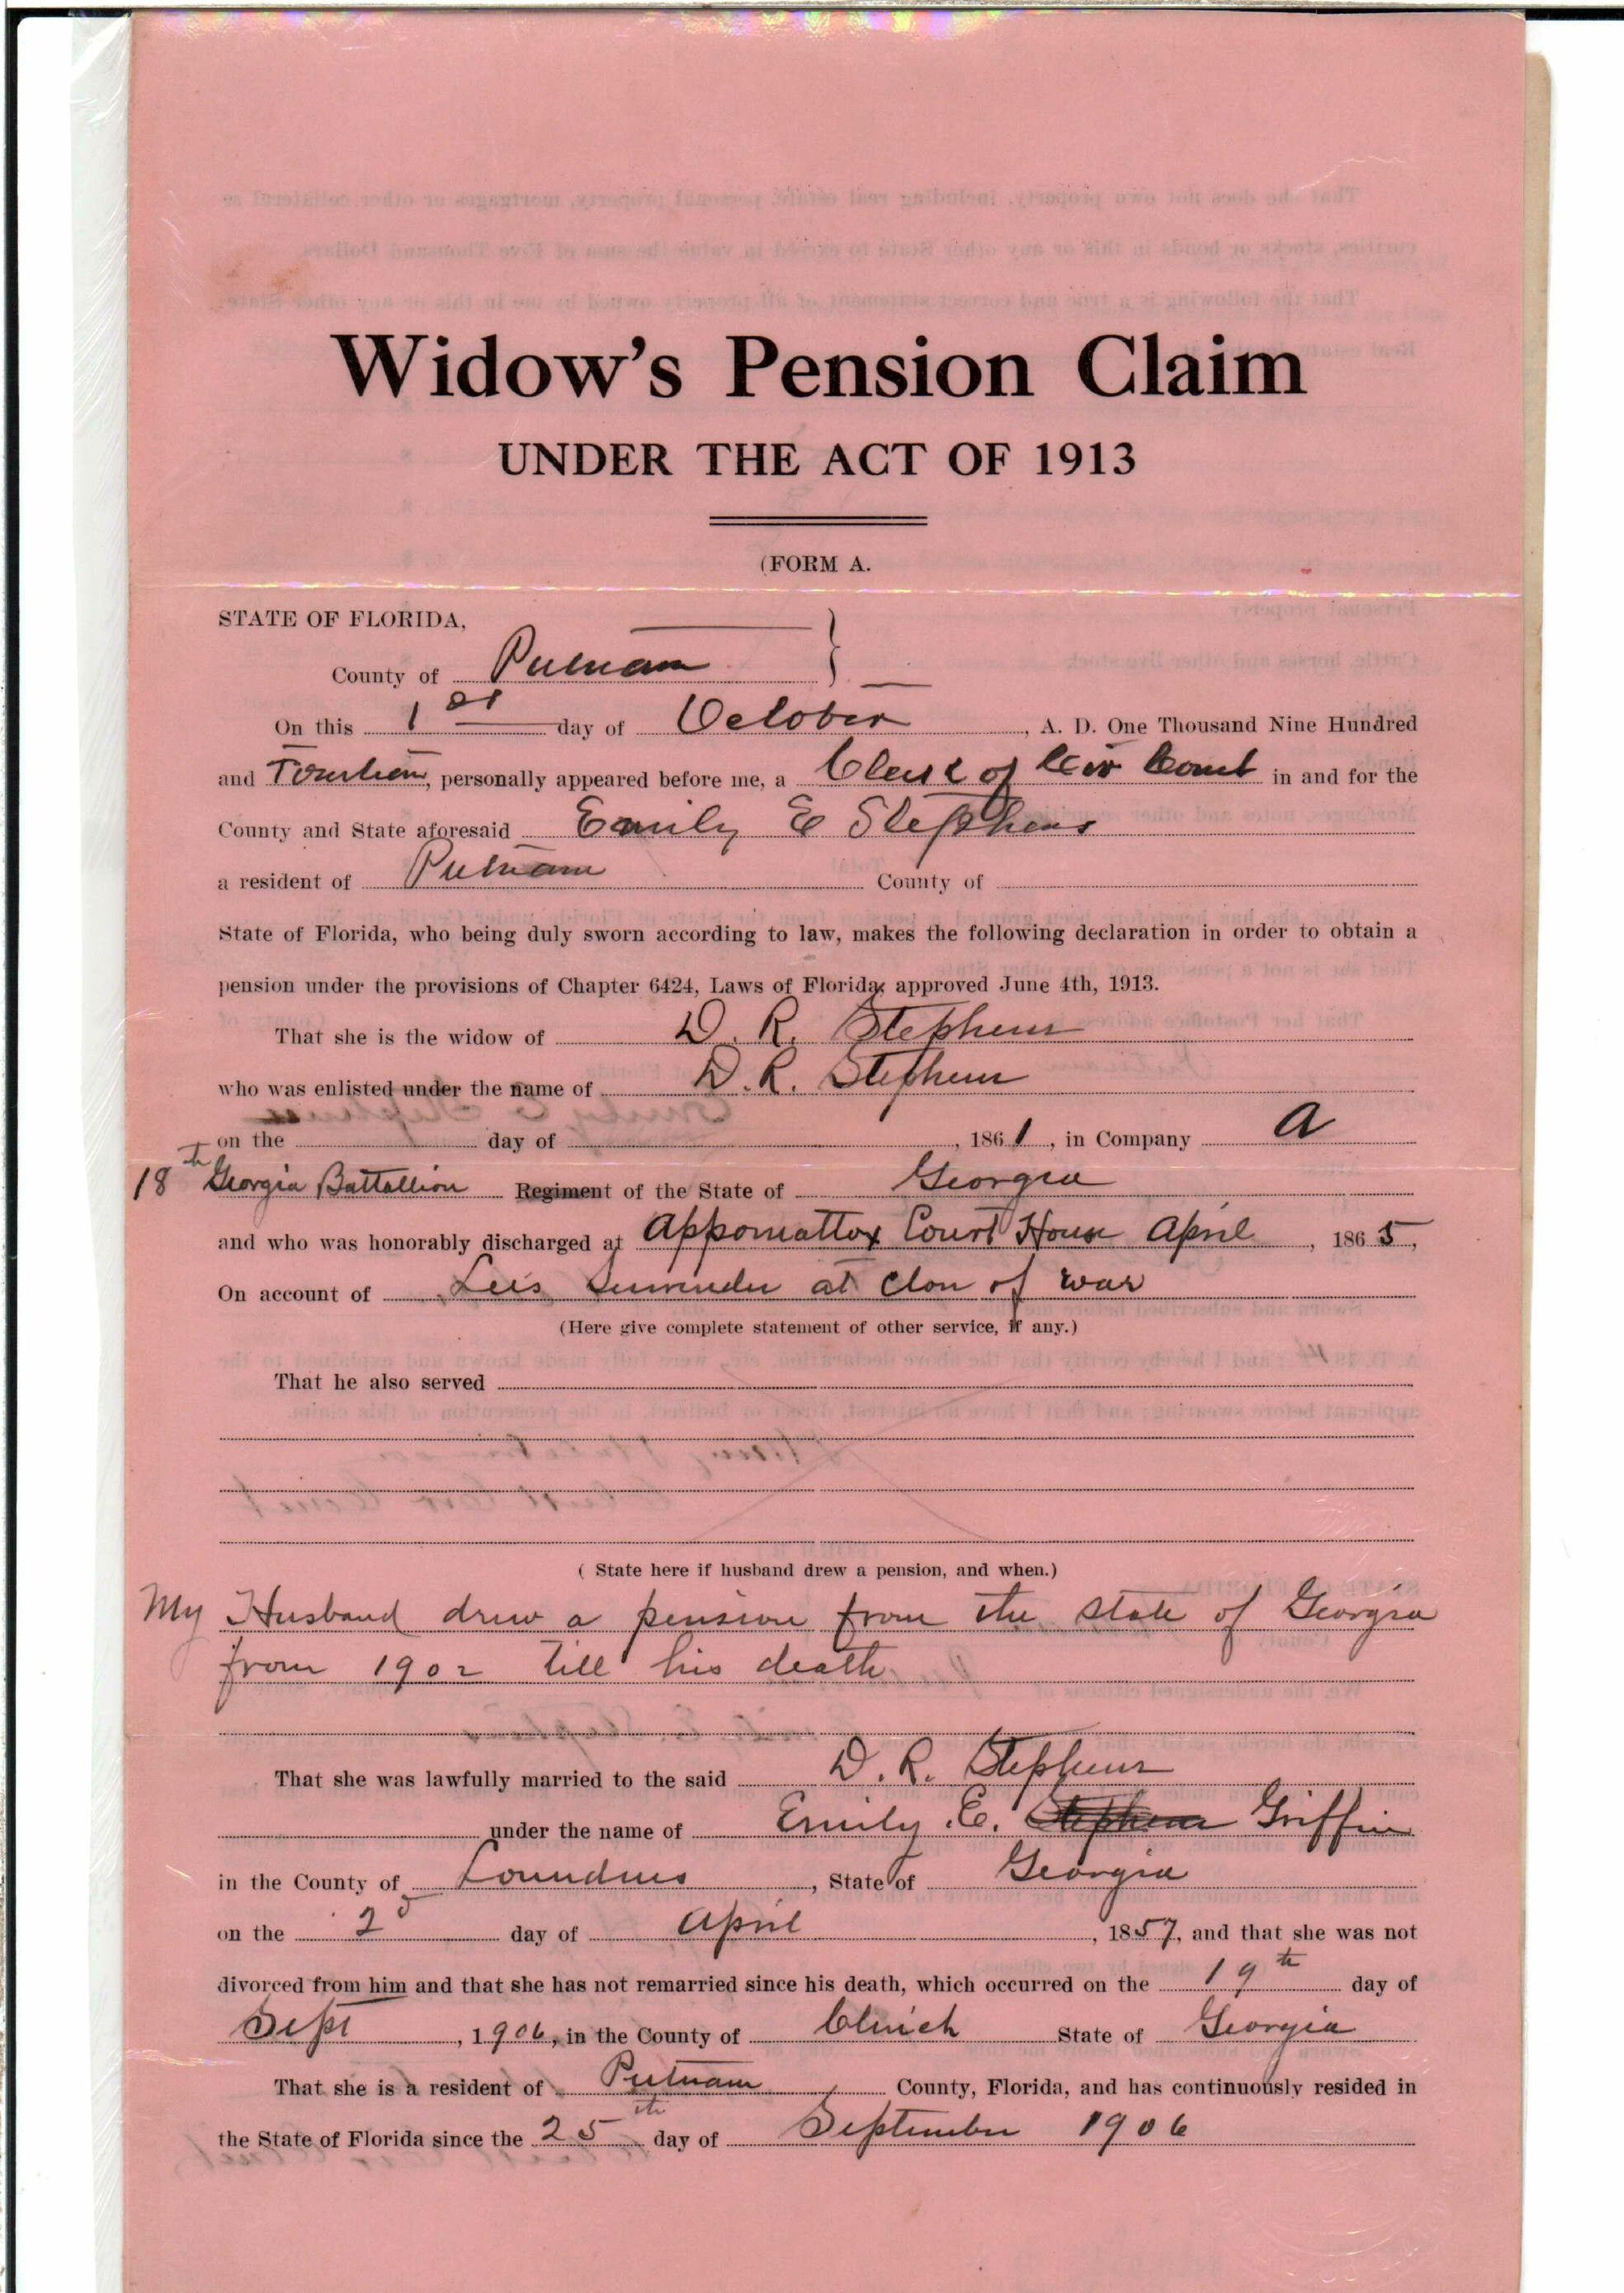 Widow's Pension Claim
UNDER THE ACT OF 1913
(FORM A.
STATE OF FLORIDA,
County of Putnam
On this 1st day of October, A. D. One Thousand Nine Hundred
and Fourteen, personally appeared before me, a Clerk of Cir Court in and for the
County and State aforesaid Emily E Stephens
a resident of Putnam County of
State of Florida, who being duly sworn according to law, makes the following declaration in order to obtain a
pension under the provisions of Chapter 6424, Laws of Florida, approved June 4th, 1913.
That she is the widow of D. R. Stephens
who was enlisted under the name of D. R. Stephens
on the day of , 1861, in Company A
18th Georgia Battallion Regiment of the State of Georgia
and who was honorably discharged at Appomattox Court House April, 1865,
On account of Lees Surrender at Close of war
(Here give complete statement of other service, if any.)
That he also served
( State here if husband drew a pension, and when.)
My Husband drew a pension from the state of Georgia
from 1902 till his death
That she was lawfully married to the said D. R. Stephens
under the name of Emily E. Stephens Griffin
in the County of Lowndes, State of Georgia
on the 2d day of April, 1857, and that she was not
divorced from him and that she has not remarried since his death, which occurred on the 19th day of
Sept, 1906, in the County of Clinch State of Georgia
That she is a resident of Putnam County, Florida, and has continuously resided in
the State of Florida since the 25th day of September 1906